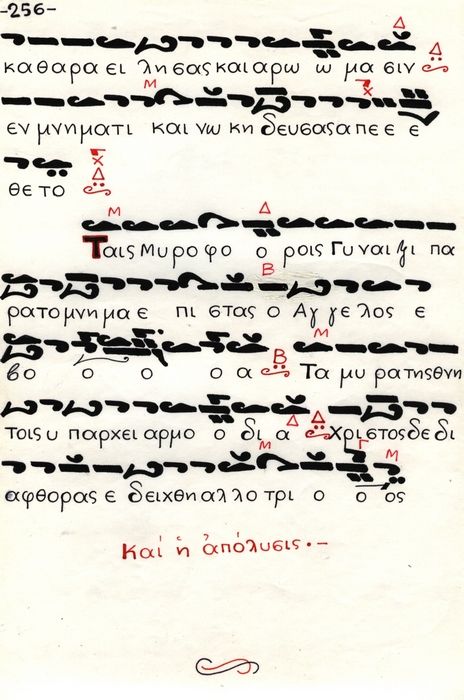 -256-
Δ
καθαρα ει λησας και αρω ω μα σιν Δ
Μ χ
εν μνηματι και νω κη δευσας απε ε ε
χ
θε το Δ
Μ Δ
Ταις Μυρο φο ο ροις Γυναι ξι πα
Β
ρα το μνημα ε πι στας ο Αγ γε λος ε
Μ
βο ο ο ο ο α Β Τα μυ ρα της θνη
Δ Δ
τοις υ παρχει αρμο ο δι α Χριστος δε δι
Μ Γ Μ
αφθορας ε δειχθη αλλο τρι ο ο ος
Καί ἡ ἀπόλυσις.-